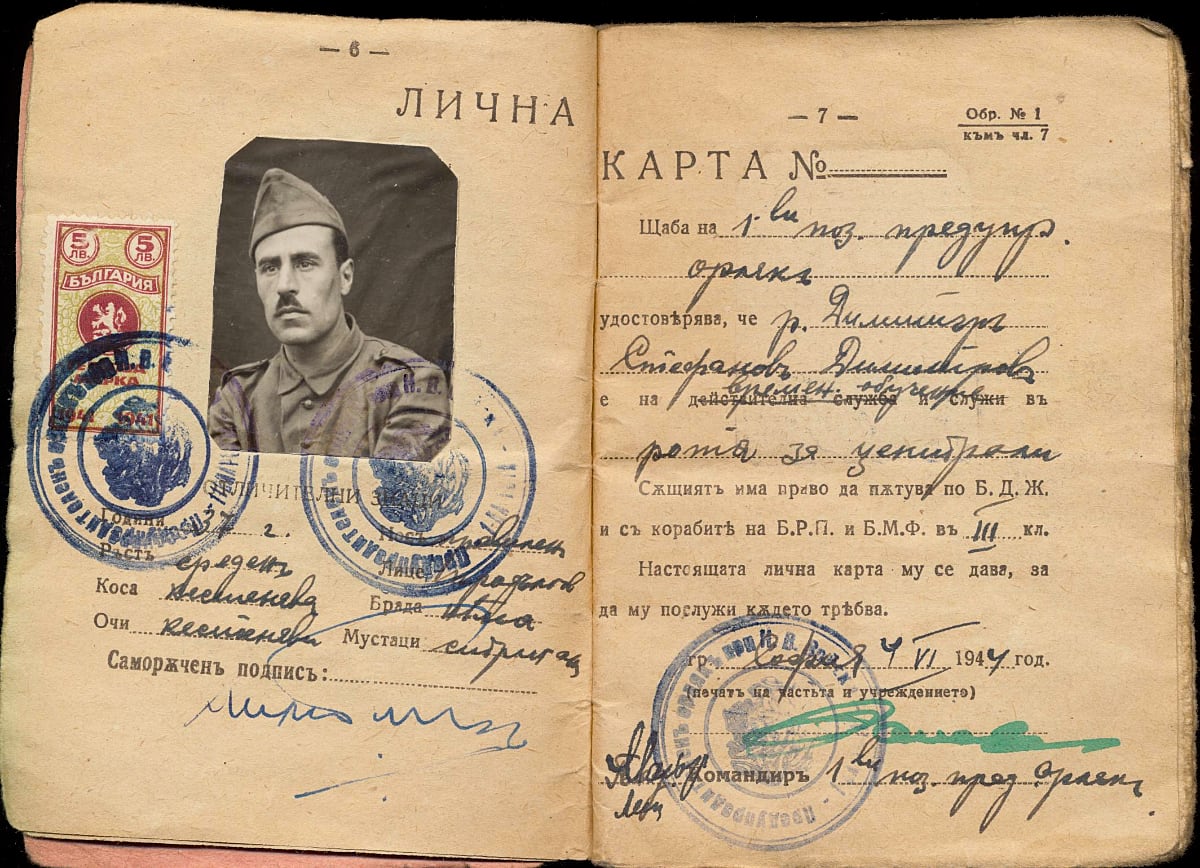 — 6 —
ЛИЧНА
5 ЛВ. 5 ЛВ.
БЪЛГАРИЯ
1941 1941
ОТЛИЧИТЕЛНИ
Година г. Носъ правиленъ
Растъ среденъ Лице
Коса кестенява Брада няма
Очи кестеняви Мустаци
Саморѫченъ подпись:
— 7 —
Обр. № 1
къмъ чл. 7
КАРТА №
Щаба на 1ви поз. предупр.
орлякъ
удостовѣрява, че р. Димитъръ
Стефановъ Димитровъ
времен. обучение
е на действителна служба и служи въ
рота за централи
Сѫщиятъ има право да пѫтува по Б. Д. Ж.
и съ корабитѣ на Б.Р.П. и Б.М.Ф. въ III кл.
Настоящата лична карта му се дава, за
да му послужи кѫдето трѣбва.
гр. София 4 VI 1944 год.
(печатъ на частьта и учреждението)
Командиръ 1ви поз. пред. орлякъ